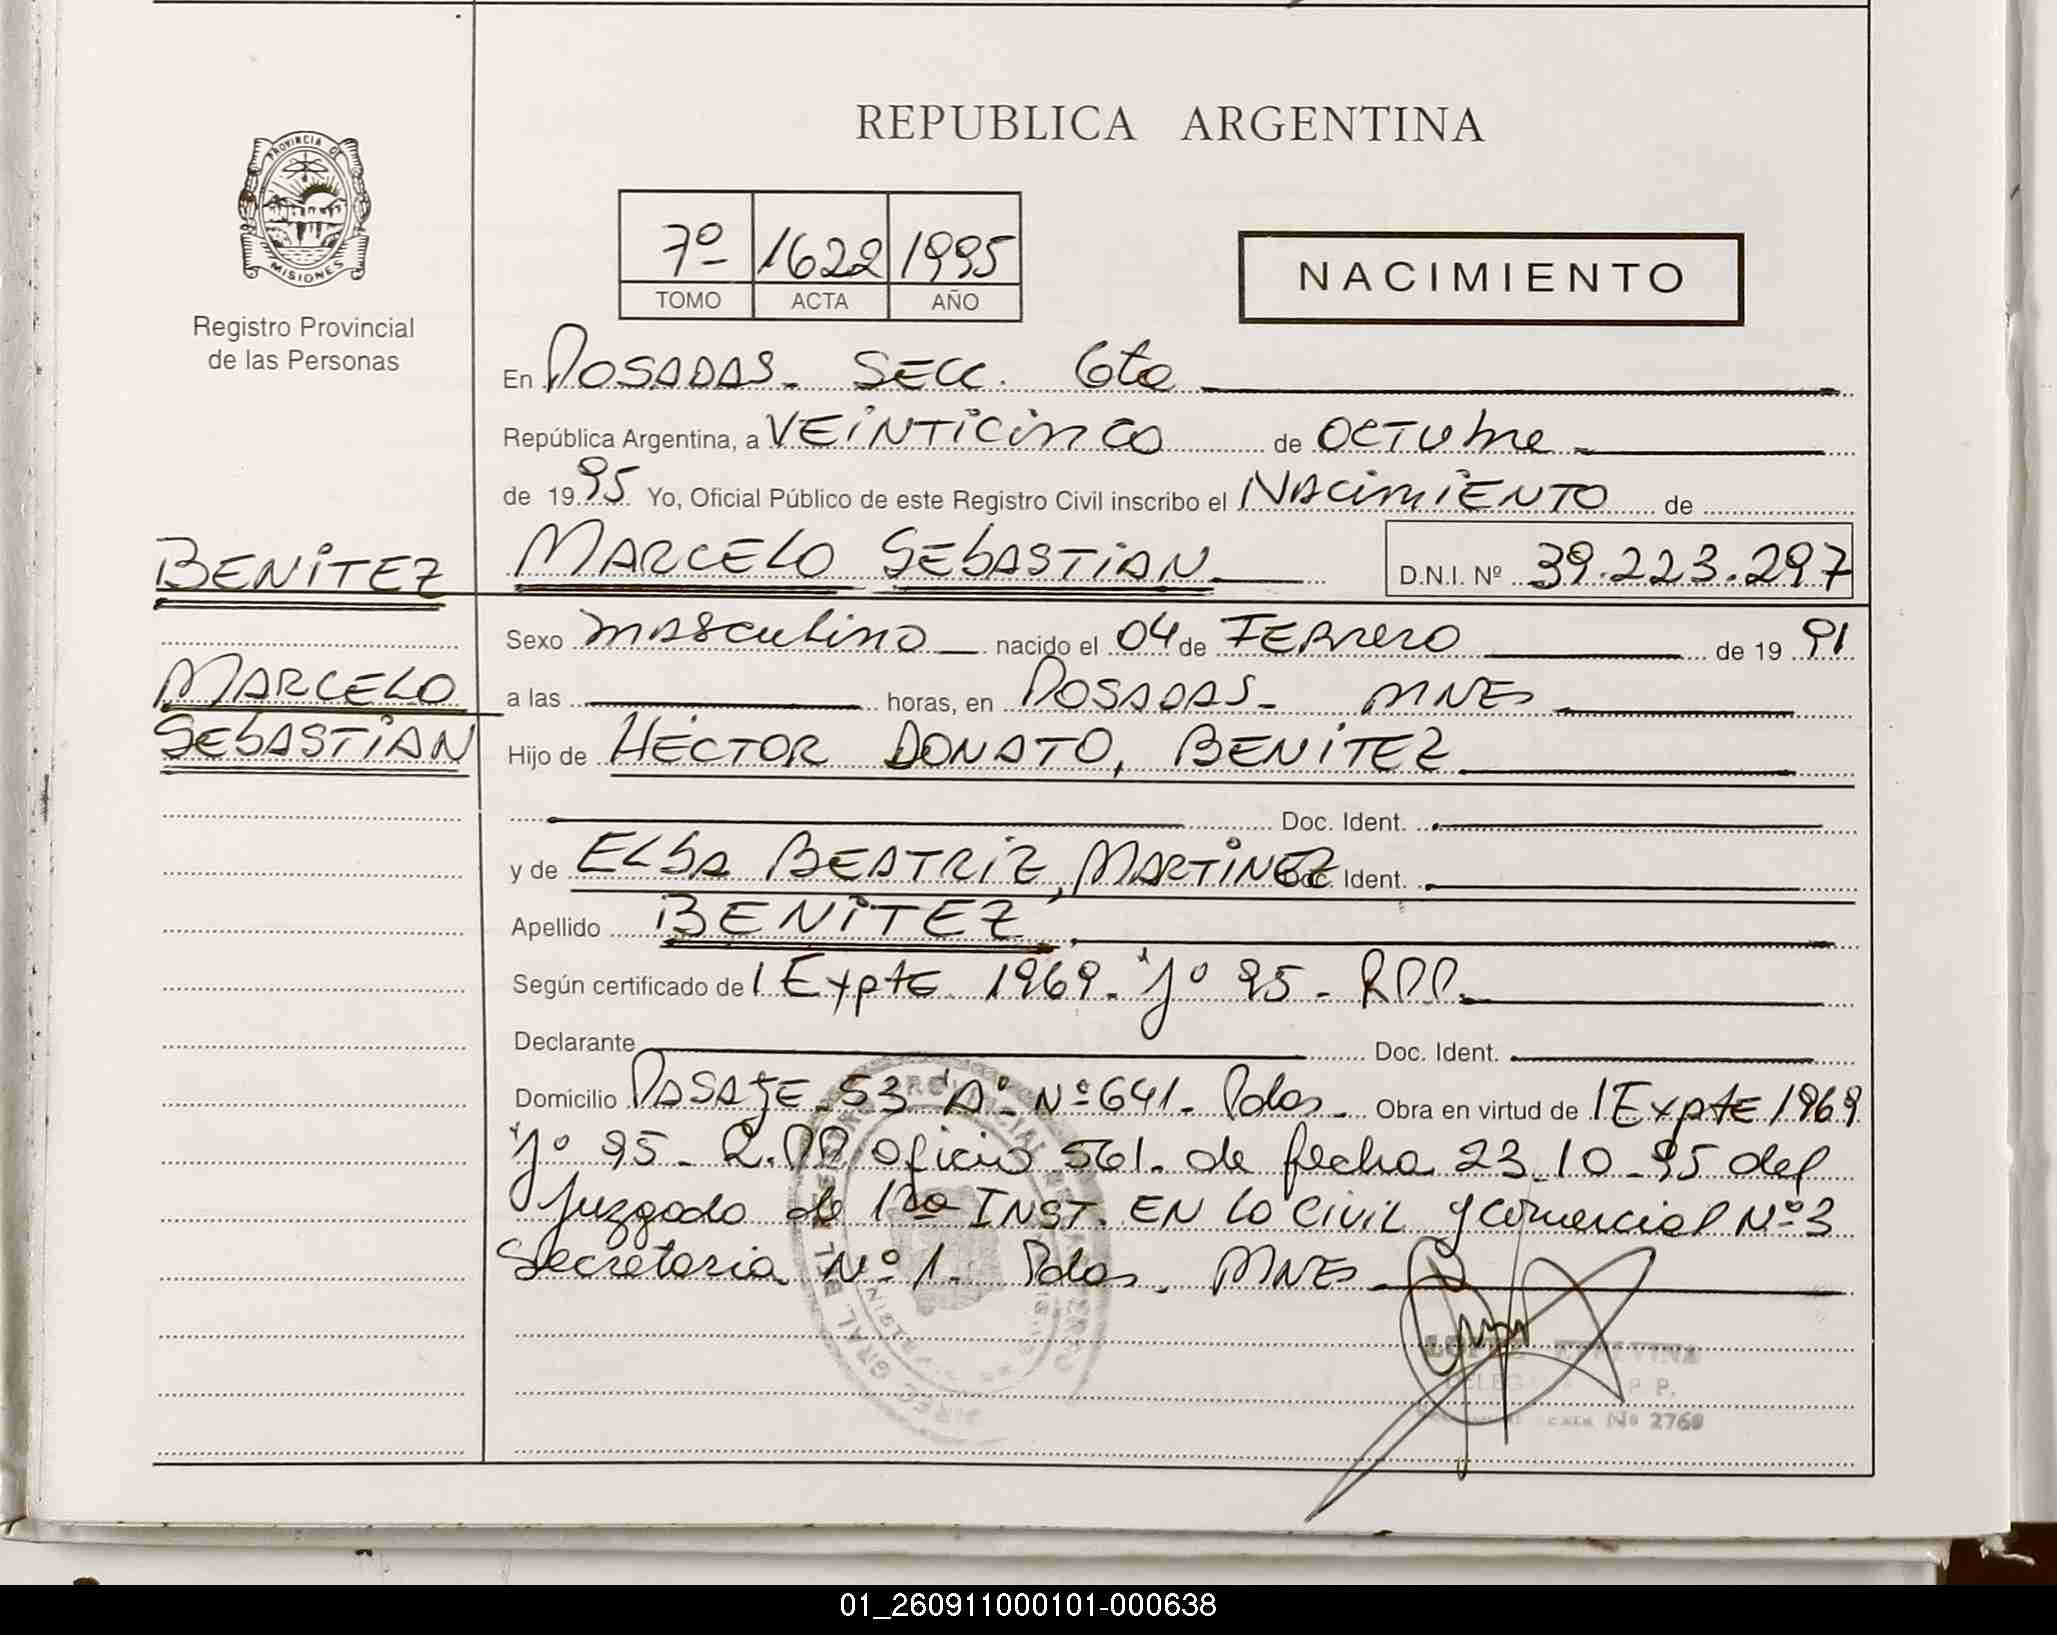 REPUBLICA ARGENTINA
PROVINCIA DE
MISIONES
Registro Provincial
de las Personas
7º 1622 1995
TOMO ACTA AÑO
NACIMIENTO
En POSADAS - SECC. 6ta
República Argentina, a VEINTICINCO de OCTUbre
de 1995 Yo, Oficial Público de este Registro Civil inscribo el NACIMIENTO de
BENITEZ
MARCELO SEBASTIAN D.N.I. Nº 39.223.297
Sexo masculino nacido el 04 de FEBrero de 1991
MARCELO
SEBASTIAN
a las horas, en POSADAS - MNES
Hijo de HÉCTOR DONATO, BENITEZ
Doc. Ident.
y de ELbA BEATRIZ, MARTINEZ Doc. Ident.
Apellido BENITEZ
Según certificado de Expte 1969 - "J" 95 - RPP.
Declarante Doc. Ident.
Domicilio PASAJE - 53 "A" - Nº 641 - Pdas - Obra en virtud de Expte 1969
"J" 95 - R.PP. Oficio 561 - de fecha 23-10-95 del
Juzgado de 1ra INST. EN LO CIVIL y Comercial Nº 3
Secretaria Nº 1 - Pdas - MNES
Nº 2768
01_260911000101-000638